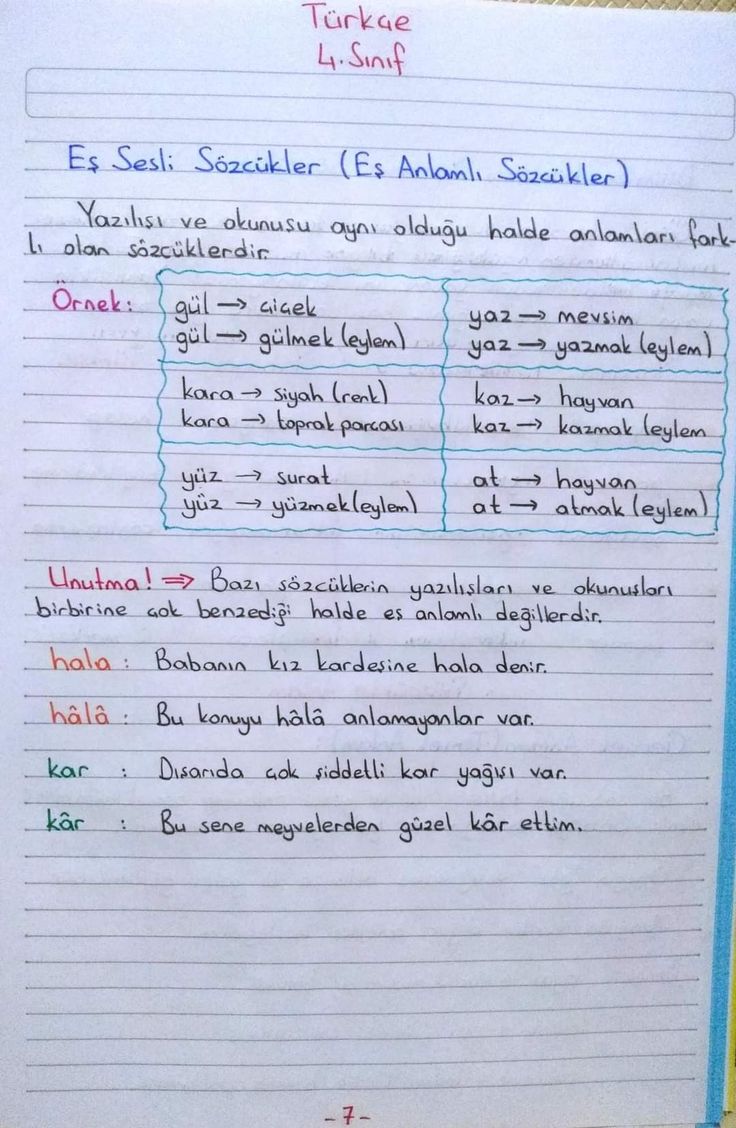 Türkçe
4. Sınıf
Eş Sesli Sözcükler (Eş Anlamlı Sözcükler)
Yazılışı ve okunuşu aynı olduğu halde anlamları fark-
lı olan sözcüklerdir.
Örnek:
gül → çiçek
gül → gülmek (eylem)
yaz → mevsim
yaz → yazmak (eylem)
kara → siyah (renk)
kara → toprak parçası
kaz → hayvan
kaz → kazmak (eylem
yüz → surat
yüz → yüzmek (eylem)
at → hayvan
at → atmak (eylem)
Unutma! ⇒ Bazı sözcüklerin yazılışları ve okunuşları
birbirine çok benzediği halde eş anlamlı değillerdir.
hala : Babanın kız kardeşine hala denir.
hâlâ : Bu konuyu hâlâ anlamayanlar var.
kar : Dışarıda çok şiddetli kar yağışı var.
kâr : Bu sene meyvelerden güzel kâr ettim.
-7-